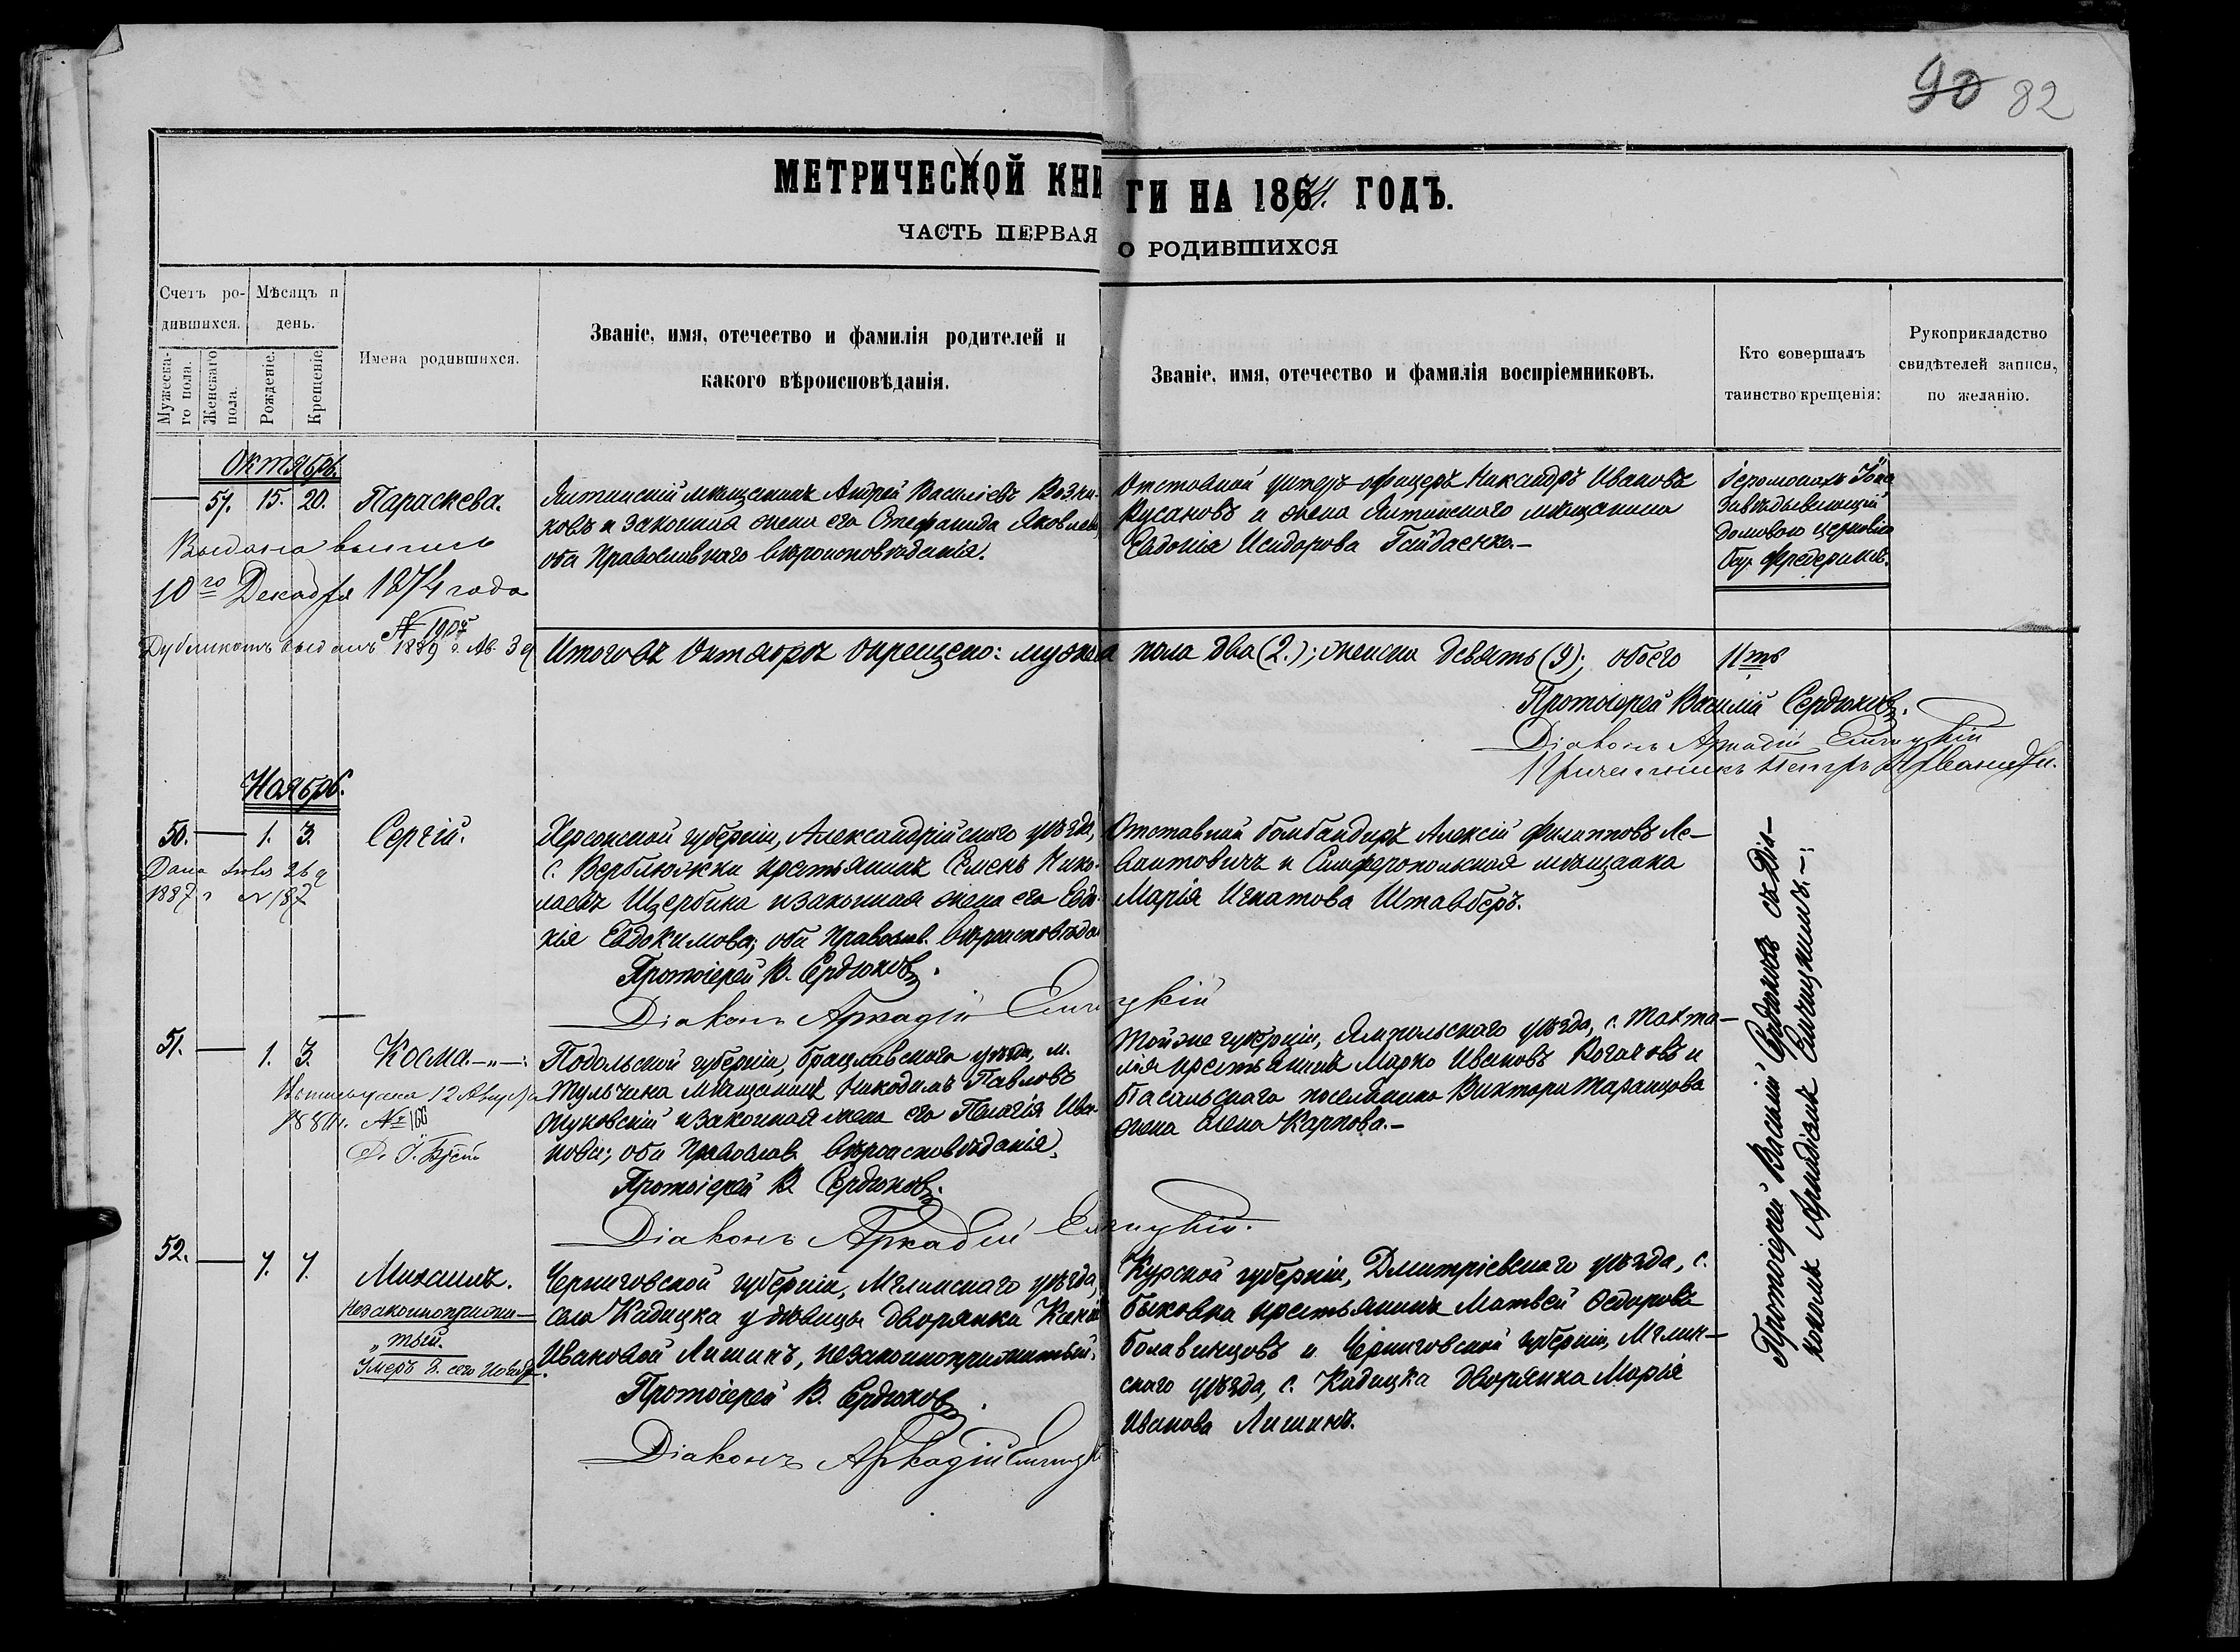 90 82
МЕТРИЧЕСКОЙ КНИГИ НА 1874. ГОДЪ.
ЧАСТЬ ПЕРВАЯ О РОДИВШИХСЯ
Счетъ ро-
дившихся.
Мужеска-
го пола.
Женскаго
пола.
Мѣсяцъ и
день.
Рожденіе.
Крещеніе
Имена родившихся.
Званіе, имя, отечество и фамилія родителей и
какого вѣроисповѣданія.
Званіе, имя, отечество и фамилія воспріемниковъ.
Кто совершалъ
таинство крещенія:
Рукоприкладство
свидѣтелей записи,
по желанію.
Октябрь.
57. 15. 20. Параскева.
Выдана выпись
10го Декабря 1874 года
Дубликатъ выданъ 1889 г.
Ялтинскій мѣщанинъ Андрей Василіевъ
и законная жена его Стефанида Яковлева,
оба Православнаго вѣроисповѣданія.
Отставной унтеръ-офицеръ Никандръ Ивановъ
Русановъ и жена Ялтинскаго мѣщанина
Евдокія Исидорова Гайдаенко.—
Іеромонахъ Іона
Завѣдывающій
домовою церковію
Итого въ Октябрѣ окрещено: мужеска пола два (2.); женска девять (9); обоего 11ть
Протоіерей Василій Сердюковъ.
Діаконъ Аркадій Енчицкій
Причетникъ Петръ
Ноябрь.
50. 1. 3. Сергій.
1887 г № 187
Херсонской губерніи, Александрійскаго уѣзда,
с. Верблюжки крестьянинъ Семенъ Нико-
лаевъ Щербина и законная жена его Евдо-
кія Евдокимова; оба Православ. вѣроисповѣдан
Протоіерей В. Сердюковъ.
Діаконъ Аркадій Енчицкій
Отставной бомбандиръ Алексій Филипповъ Ле-
вантовичъ и Симферопольская мѣщанка
Марія Игнатова Штавберъ.
51. 1. 3. Косма.—„—:
12 Августа
№ 166
Подольской губерніи, Брацлавскаго уѣзда, м.
Тульчина мѣщанинъ Никодимъ Павловъ
и законная жена его Пелагія Ива-
нова; оба Православ. вѣроисповѣданія.
Протоіерей В. Сердюковъ.
Діаконъ Аркадій Енчицкій.
Той же губерніи, Ямпольскаго уѣзда, с.
крестьянинъ Марко Ивановъ Рогачовъ и
поселянина Виктора Таранцова
жена Елена Карпова.—
52. 7. 7. Михаилъ.
Незаконноприжи-
„тый.
Умеръ 8. сего Ноября.
Черниговской губерніи, Мглинскаго уѣзда,
села Кадецка у дѣвицы дворянки Ксеніи
Ивановой Лишинъ, незаконноприжитый.
Протоіерей В. Сердюковъ.
Діаконъ Аркадій Енчицкій
Курской губерніи, Дмитріевскаго уѣзда, с.
Быковка крестьянинъ Матвей Ѳедоровъ
Болавинцовъ и Черниговской губерніи, Мглин-
скаго уѣзда, с. Кадецка дворянка Марія
Иванова Лишинъ.
Протоіерей Василій Сердюковъ съ Діа-
кономъ Аркадіемъ Енчицкимъ.—: